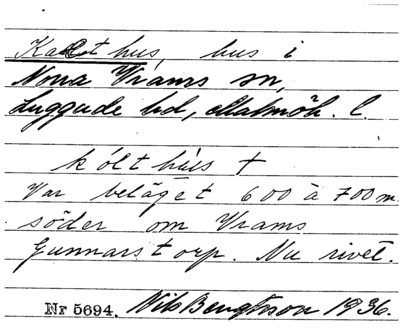 Kallt hus, hus i
Norra Vrams sn,
Luggude hd, Malmöh. l.
kȯlt hùs +
Var beläget 600 à 700 m
söder om Vrams
Gunnarstorp. Nu rivet.
Nr 5694. Nils Bengtsson 1936.